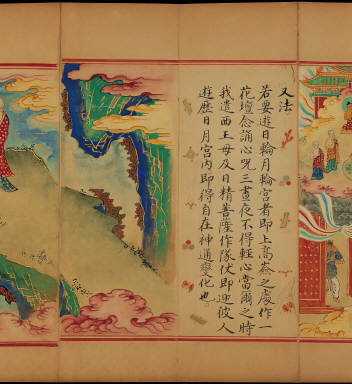 又法
若要遊日輪月輪宮者即上高處之處作一
花壇念誦心咒三晝夜不得輕心當爾之時
我遣西王母及日精菩薩作隊仗即迎彼人
遊歷日月宮内即得自在神通變化也